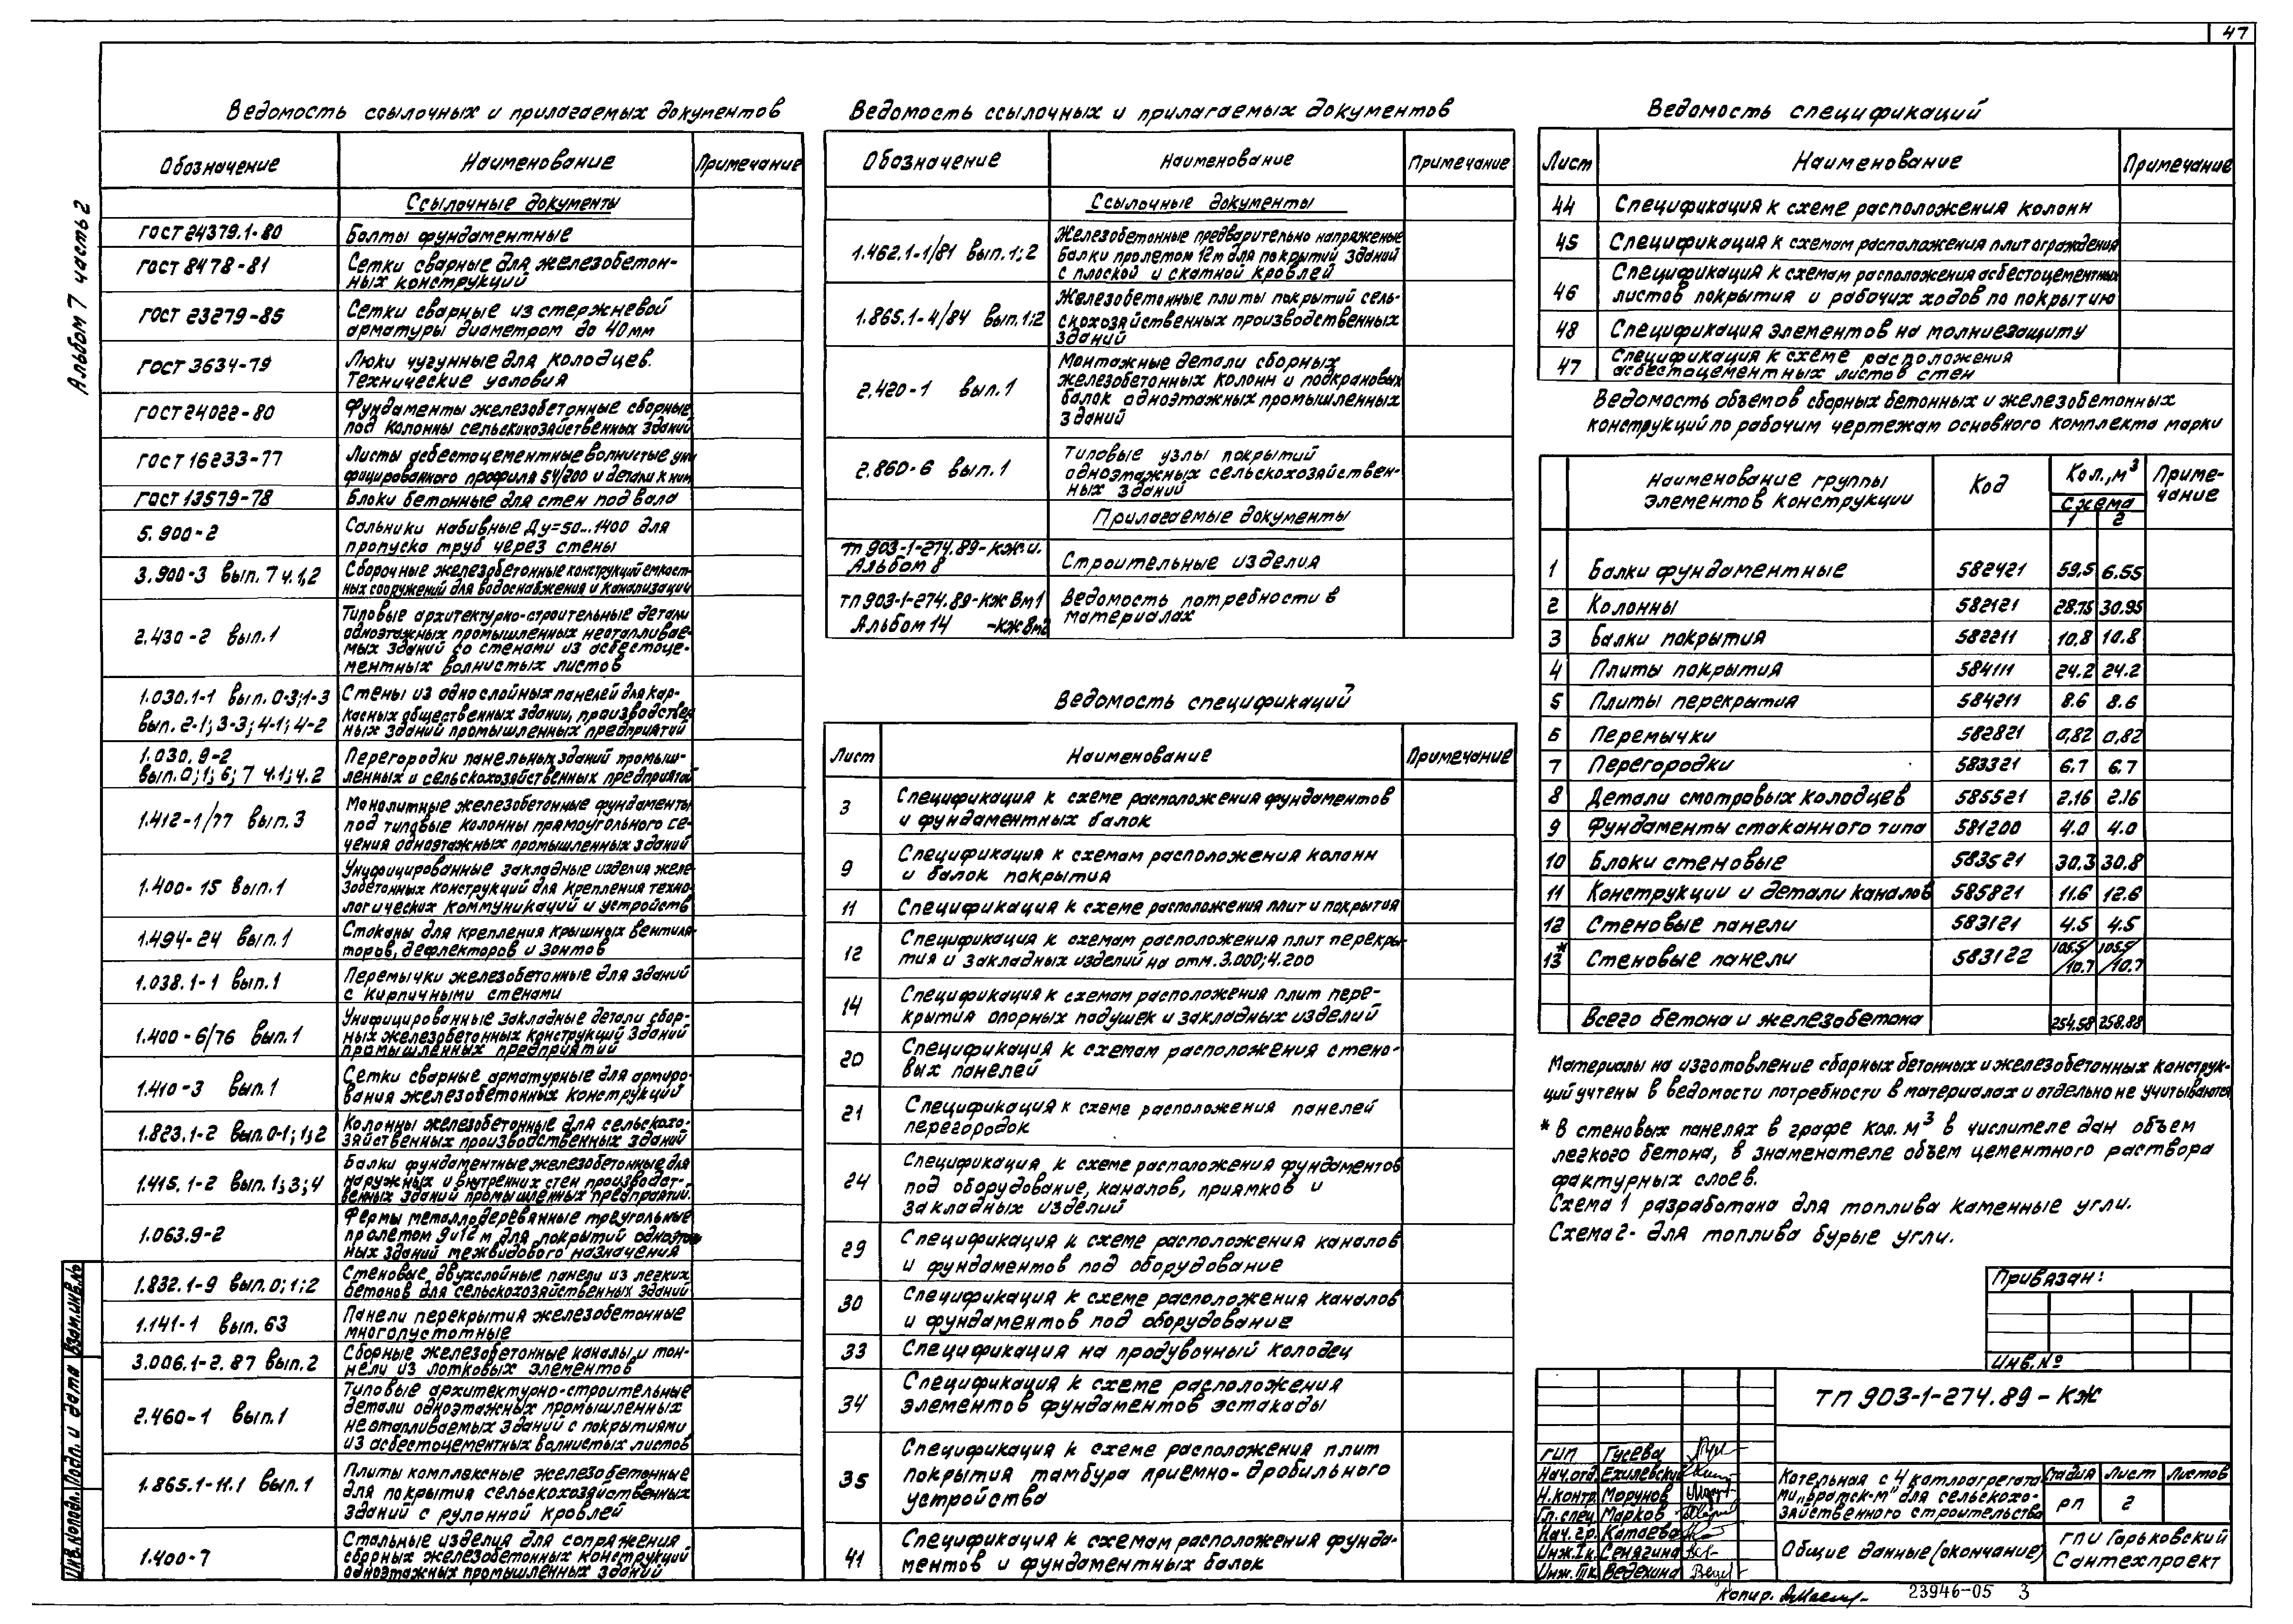 47
Альбом 7 часть 2
Ведомость ссылочных и прилагаемых документов
Обозначение Наименование Примечание
Ссылочные документы
ГОСТ 24379.1-80 Болты фундаментные
ГОСТ 8478-81 Сетки сварные для железобетон-
ных конструкций
ГОСТ 23279-85 Сетки сварные из стержневой
арматуры диаметром до 40мм
ГОСТ 3634-79 Люки чугунные для колодцев.
Технические условия
ГОСТ 24022-80 Фундаменты железобетонные сборные
под колонны сельскохозяйственных зданий
ГОСТ 16233-77 Листы асбестоцементные волнистые уни
фицированного профиля 54/200 и детали к ним
ГОСТ 13579-78 Блоки бетонные для стен подвала
5.900-2 Сальники набивные Ду=50...1400 для
пропуска труб через стены
3.900-3 вып. 7 ч.1,2 Сборочные железобетонные конструкций емкост-
ных сооружений для водоснабжения и канализации
2.430-2 вып.1 Типовые архитектурно-строительные детали
одноэтажных промышленных неотапливае-
мых зданий со стенами из асбестоце-
ментных волнистых листов
1.030.1-1 вып. 0-3;1-3 Стены из однослойных панелей для кар-
вып. 2-1; 3-3; 4-1; 4-2 касных общественных зданий, производствен
ных зданий промышленных предприятий
1.030.9-2 Перегородки панельных зданий промыш-
вып.0;1; 6; 7 ч.1; ч.2 ленных и сельскохозяйственных предприятий
1.412-1/77 вып.3 Монолитные железобетонные фундаменты
под типовые колонны прямоугольного се-
чения одноэтажных промышленных зданий
1.400-15 вып.1 Унифицированные закладные изделия желе-
зобетонных конструкций для крепления техно-
логических коммуникаций и устройств
1.494-24 вып.1 Стаканы для крепления крышных вентиля-
торов, дефлекторов и зонтов
1.038.1-1 вып.1 Перемычки железобетонные для зданий
с кирпичными стенами
1.400-6/76 вып.1 Унифицированные закладные детали сбор-
ных железобетонных конструкций зданий
промышленных предприятий
1.410-3 вып.1 Сетки сварные арматурные для армиро-
вания железобетонных конструкций
1.823.1-2 вып.0-1; 1;2 Колонны железобетонные для сельскохо-
зяйственных производственных зданий
1.415.1-2 вып.1;3;4 Балки фундаментные железобетонные для
наружных и внутренних стен производст-
венных зданий промышленных предприятий.
1.063.9-2 Фермы металлодеревянные треугольные
пролетом 9 и 12 м для покрытий одноэтаж
ных зданий межвидового назначения
1.832.1-9 вып.0;1;2 Стеновые двухслойные панели из легких
бетонов для сельскохозяйственных зданий
1.141-1 вып. 63 Панели перекрытия железобетонные
многопустотные
3.006.1-2.87 вып.2 Сборные железобетонные каналы и тон-
нели из лотковых элементов
2.460-1 вып.1 Типовые архитектурно-строительные
детали одноэтажных промышленных
неотапливаемых зданий с покрытиями
из асбестоцементных волнистых листов
1.865.1-11.1 вып.1 Плиты комплексные железобетонные
для покрытия сельскохозяйственных
зданий с рулонной кровлей
1.400-7 Стальные изделия для сопряжения
сборных железобетонных конструкций
одноэтажных промышленных зданий
Ведомость ссылочных и прилагаемых документов
Обозначение Наименование Примечание
Ссылочные документы
1.462.1-1/81 вып.1;2 Железобетонные предварительно напряженые
балки пролетом 12м для покрытий зданий
с плоской и скатной кровлей
1.865.1-4/84 вып.1;2 Железобетонные плиты покрытий сель-
скохозяйственных производственных
зданий
2.420-1 вып.1 Монтажные детали сборных
железобетонных колонн и подкрановых
балок одноэтажных промышленных
зданий
2.860-6 вып.1 Типовые узлы покрытий
одноэтажных сельскохозяйствен-
ных зданий
Прилагаемые документы
ТП 903-1-274.89-КЖ.И. Строительные изделия
Альбом 8
ТП 903-1-274.89-КЖ Вм1 Ведомость потребности в
Альбом 14 -КЖ Вм2 материалах
Ведомость спецификаций
Лист Наименование Примечание
3 Спецификация к схеме расположения фундаментов
и фундаментных балок
9 Спецификация к схемам расположения колонн
и балок покрытия
11 Спецификация к схеме расположения плит и покрытия
12 Спецификация к схемам расположения плит перекры-
тия и закладных изделий на отм.3.000;4.200
14 Спецификация к схемам расположения плит пере-
крытия опорных подушек и закладных изделий
20 Спецификация к схемам расположения стено-
вых панелей
21 Спецификация к схеме расположения панелей
перегородок
24 Спецификация к схеме расположения фундаментов
под оборудование, каналов, приямков и
закладных изделий
29 Спецификация к схеме расположения каналов
и фундаментов под оборудование
30 Спецификация к схеме расположения каналов
и фундаментов под оборудование
33 Спецификация на продувочный колодец
34 Спецификация к схеме расположения
элементов фундаментов эстакады
35 Спецификация к схеме расположения плит
покрытия тамбура приемно-дробильного
устройства
41 Спецификация к схемам расположения фунда-
ментов и фундаментных балок
Ведомость спецификаций
Лист Наименование Примечание
44 Спецификация к схеме расположения колонн
45 Спецификация к схемам расположения плит ограждения
46 Спецификация к схемам расположения асбестоцементных
листов покрытия и рабочих ходов по покрытию
48 Спецификация элементов на молниезащиту
47 Спецификация к схеме расположения
асбестоцементных листов стен
Ведомость объемов сборных бетонных и железобетонных
конструкций по рабочим чертежам основного комплекта марки
Наименование группы элементов конструкции Код Кол., м³ Приме-
чание
Схема
1 2
1 Балки фундаментные 582421 59,5 6.55
2 Колонны 582121 28.75 30.95
3 Балки покрытия 582211 10.8 10.8
4 Плиты покрытия 584111 24.2 24.2
5 Плиты перекрытия 584211 8.6 8.6
6 Перемычки 582821 0,82 0,82
7 Перегородки 583321 6.7 6.7
8 Детали смотровых колодцев 585521 2.16 2.16
9 Фундаменты стаканного типа 581200 4.0 4.0
10 Блоки стеновые 583521 30.3 30.8
11 Конструкции и детали каналов 585821 11.6 12.6
12 Стеновые панели 583121 4.5 4.5
13* Стеновые панели 583122 105.5/10.7 105.5/10.7
Всего бетона и железобетона 254.58 258.88
Материалы на изготовление сборных бетонных и железобетонных конструк-
ций учтены в ведомости потребности в материалах и отдельно не учитываются
* В стеновых панелях в графе кол. м³ в числителе дан объем
легкого бетона, в знаменателе объем цементного раствора
фактурных слоев.
Схема 1 разработана для топлива каменные угли.
Схема 2- для топлива бурые угли.
Привязан:
Инв.№
ТП 903-1-274.89-КЖ
ГИП Гусева
Нач.отд. Ехилевский
Н.контр. Морунов
Гл.спец. Марков
Нач.гр. Катаева
Инж.Iк. Сенягина
Инж.IIк. Ведехина
Котельная с 4 котлоагрегата-
ми „Братск-М" для сельскохо-
зяйственного строительства
Стадия Лист Листов
РП 2
Общие данные (окончание)
ГПИ Горьковский
Сантехпроект
Копир.
23946-05 3
Инв.№подл. Подп. и дата Взам.инв.№